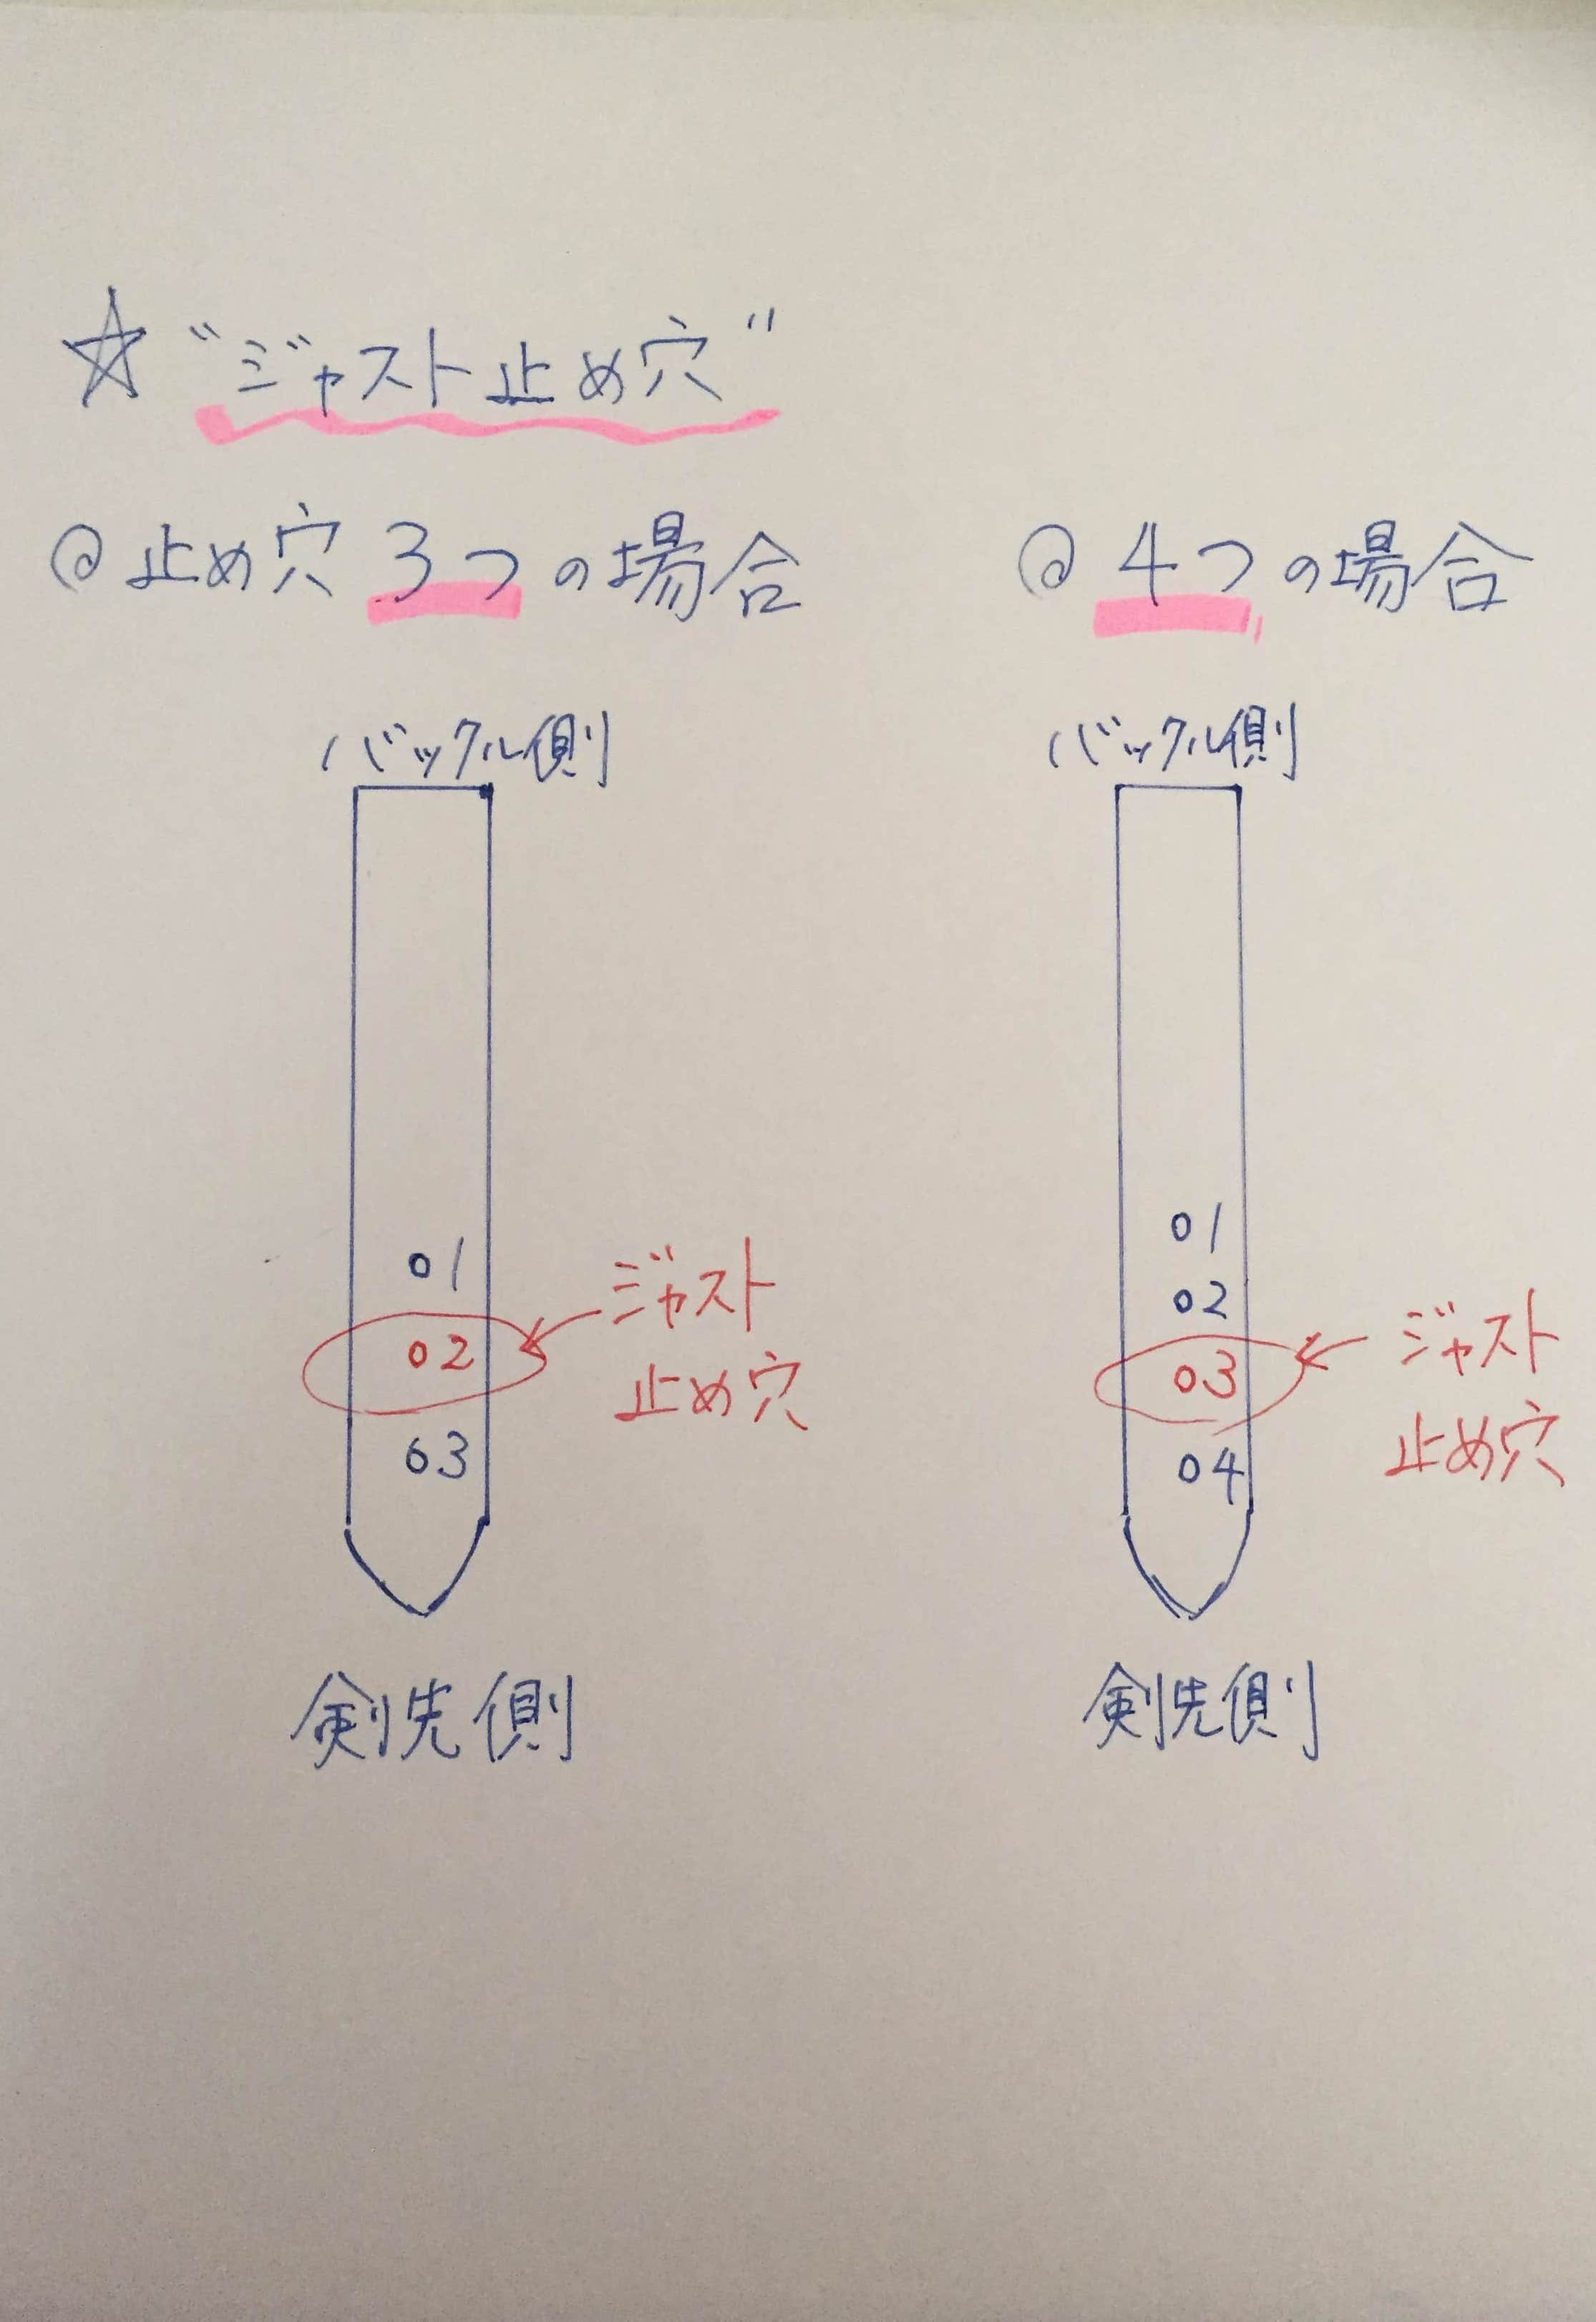 ☆ "ジャスト止め穴"
@ 止め穴 3つの場合
バックル側
o1
o2
o3
ジャスト
止め穴
剣先側
@ 4つの場合
バックル側
o1
o2
o3
o4
ジャスト
止め穴
剣先側